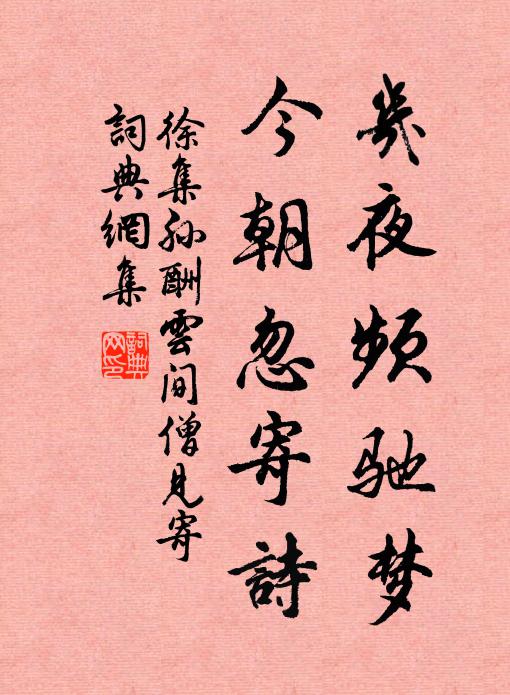 幾夜频驰梦
今朝忽寄詩
徐集孙酬雲间僧見寄
詞典網集
詞典
网印